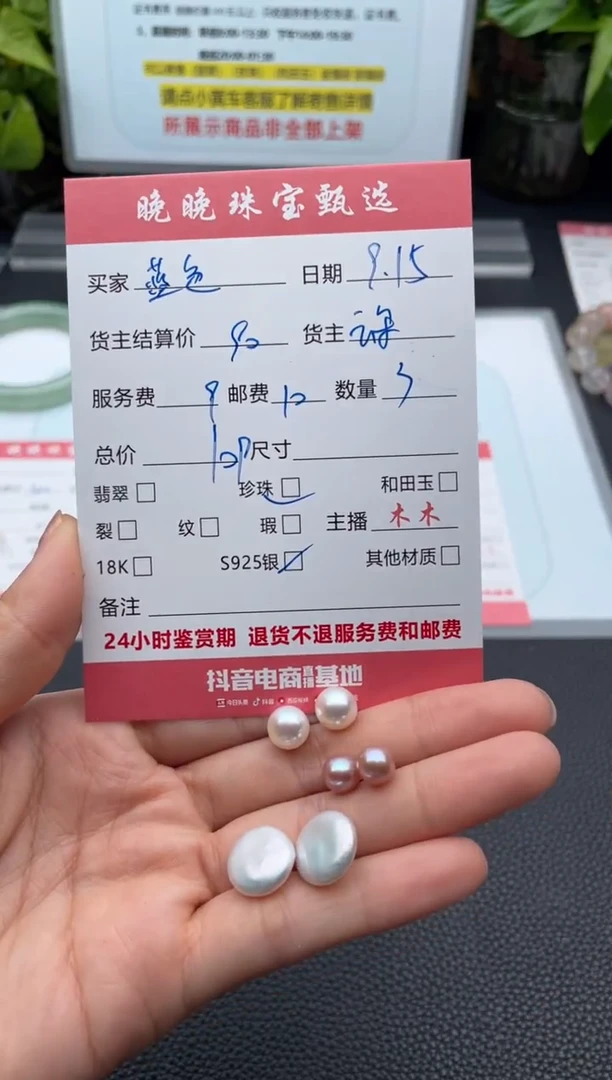 所展示商品非全部上架
晚晚珠宝甄选
买家 蓝色 日期 9.15
货主结算价 90 货主
服务费 9 邮费 10 数量 3
总价 109 尺寸
翡翠 珍珠 和田玉
裂 纹 瑕 主播 木木
18K S925银 其他材质
备注
24小时鉴赏期 退货不退服务费和邮费
抖音电商直播基地
今日头条 抖音